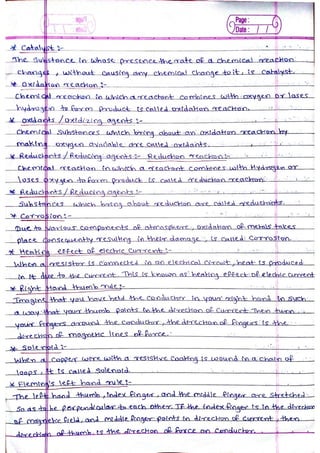 Page :
Date : / /
* Catalyst :-
The substance in whose presence the rate of a chemical reaction
changes, without causing any chemical change to it, is catalyst.
* Oxidation reaction :-
Chemical reaction in which a reactant combines with oxygen or loses
hydrogen to form product is called oxidation reaction.
* Oxidants / Oxidizing agents :-
Chemical substances which bring about an oxidation reaction by
making oxygen available are called oxidants.
* Reductants / Reducing agents :- Reduction reaction :-
Chemical reaction in which a reactant combines with Hydrogen or
loses oxygen to form product is called reduction reaction.
* Reductants / Reducing agents :-
Substances which bring about reduction are called reductants.
* Corrosion :-
Due to various components of atmosphere, oxidation of metals takes
place consequently resulting in their damage, is called Corrosion
* Heating effect of electric current :-
When a resistor is connected in an electrical circuit, heat is produced
in it due to the current. This is known as heating effect of electric current
* Right Hand thumb rule :-
Imagine that you have held the conductor in your right hand in such
a way that your thumb points in the direction of current. Then turn
your fingers around the conductor, the direction of fingers is the
direction of magnetic lines of force.
* Solenoid :-
When a copper wire with a resistive coating is wound in a chain of
loops, it is called solenoid.
* Fleming's left hand rule :-
The left hand thumb, index finger, and the middle finger are stretched
so as to be perpendicular to each other. If the index finger is in the direction
of magnetic field, and middle finger points in direction of current, then
direction of thumb is the direction of force on conductor.